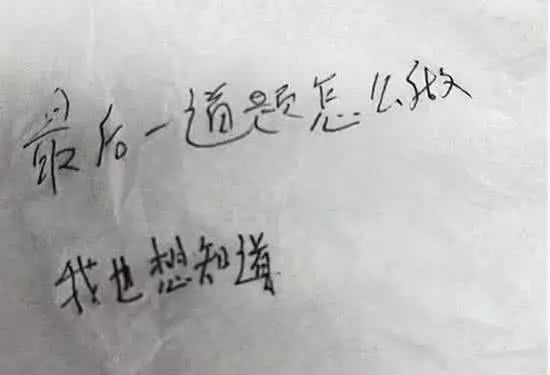 最后一道题怎么做
我也想知道